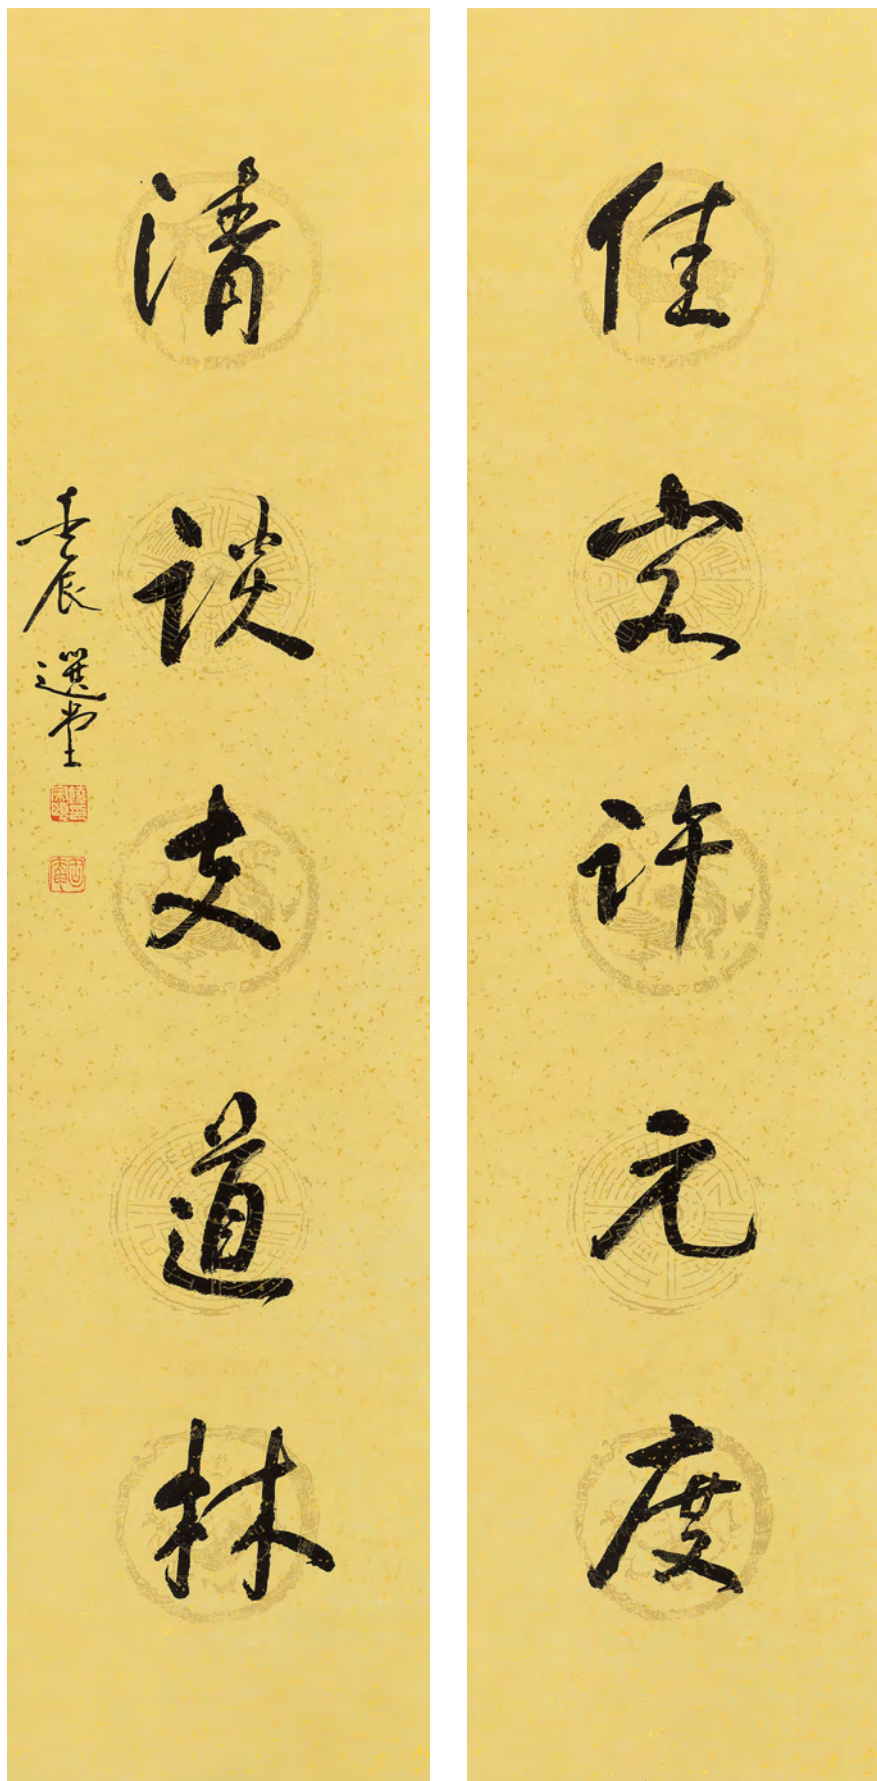 佳客許元度
清談支道林
壬辰 選堂
饒宗頤